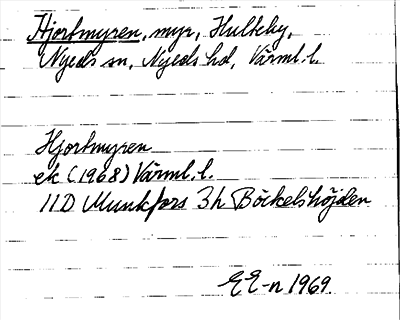 Hjortmyren, myr, Hulteby,
Nyeds sn, Nyeds hd, Värml. l.
Hjortmyren
ek (1968) Värml. l.
11D Munkfors 3h Böckelshöjden
EE-n 1969.